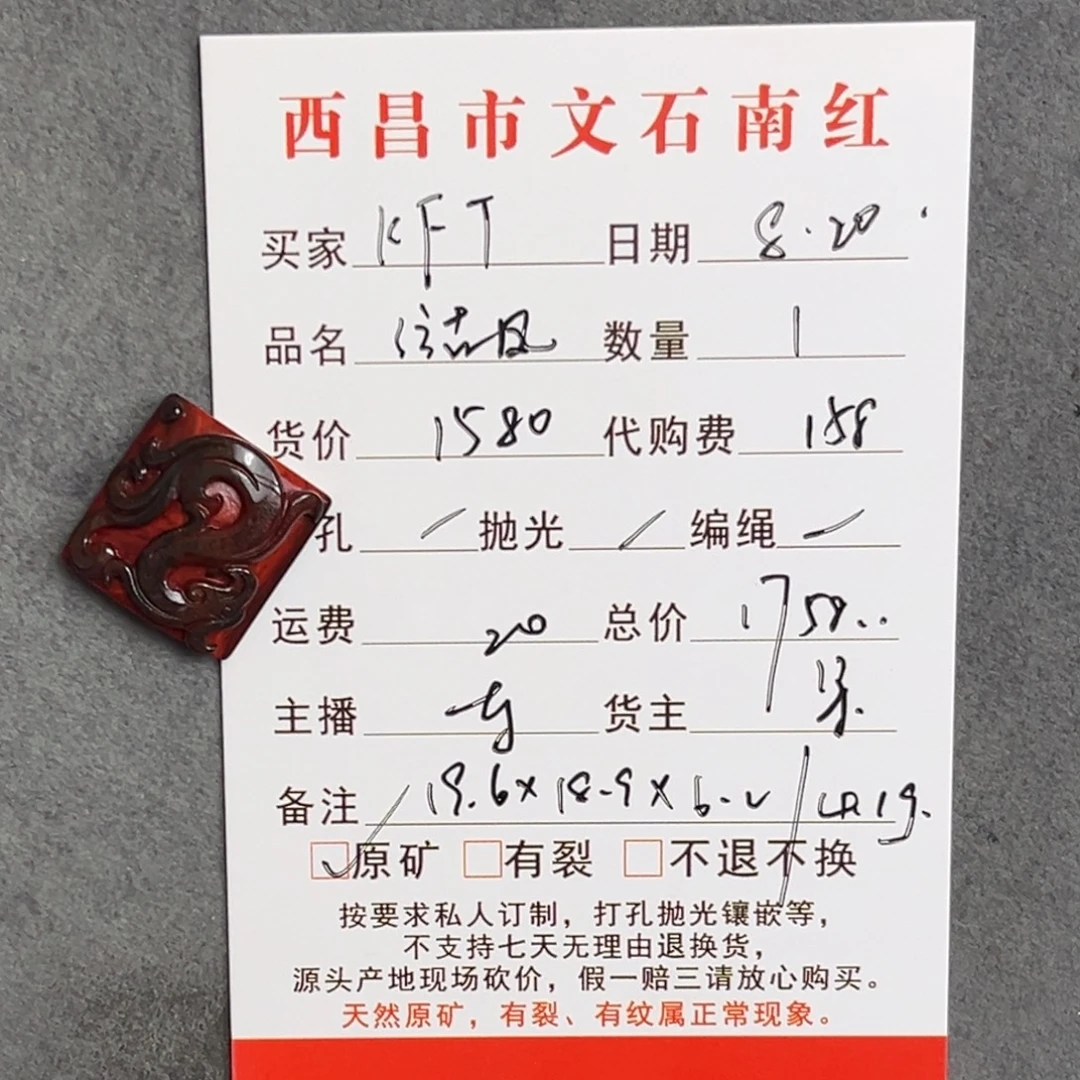 西昌市文石南红
买家 KFT 日期 8.20
品名 数量 1
货价 1580 代购费 158
孔 / 抛光 / 编绳 /
运费 20 总价 1758..
主播 货主
备注 / 19.6×18.9×6.2 /
☑原矿 □有裂 □不退不换
按要求私人订制，打孔抛光镶嵌等，
不支持七天无理由退换货，
源头产地现场砍价，假一赔三请放心购买。
天然原矿，有裂、有纹属正常现象。